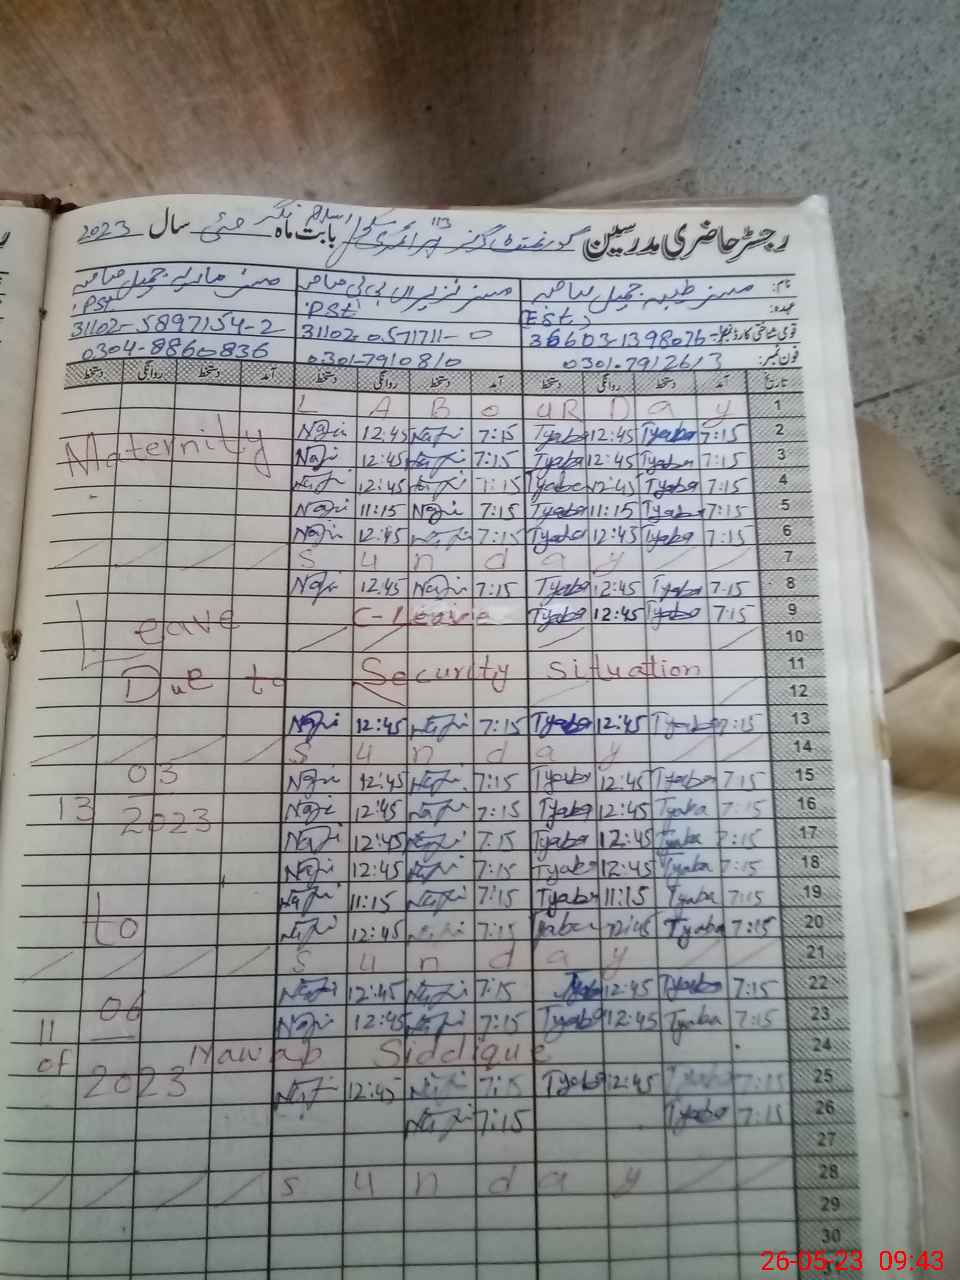 رجسٹر حاضری مدرسین گورنمنٹ گرلز پرائمری سکول 113 اسلام نگر بابت ماہ مئی سال 2023
نام: مسز طیبہ جمیل صاحبہ مسز نزیراں بی بی صاحبہ مسز ماریہ جمیل صاحبہ
عہدہ: (Est) Pst Pst
قومی شناختی کارڈ نمبر: 36603-1398076- 31102-0571711-0 31102-5897154-2
فون نمبر: 0301-7912613 0301-7910810 0304-8860836
تاریخ آمد دستخط روانگی دستخط آمد دستخط روانگی دستخط آمد دستخط روانگی دستخط
L A B o uR D a y 1
Maternity Naji 12:45 Naji 7:15 Tyaba 12:45 Tyaba 7:15 2
Naji 12:45 Naji 7:15 Tyaba 12:45 Tyaba 7:15 3
Naji 12:45 Naji 7:15 Tyaba 12:45 Tyaba 7:15 4
Naji 11:15 Naji 7:15 Tyaba 11:15 Tyaba 7:15 5
Naji 12:45 Naji 7:15 Tyaba 12:45 Tyaba 7:15 6
S u n d a y 7
Naji 12:45 Naji 7:15 Tyaba 12:45 Tyaba 7:15 8
Leave C-Leave Tyaba 12:45 Tyaba 7:15 9
10
Due to Security Situation 11
12
Naji 12:45 Naji 7:15 Tyaba 12:45 Tyaba 7:15 13
S u n d a y 14
03 Naji 12:45 Naji 7:15 Tyaba 12:45 Tyaba 7:15 15
13 Naji 12:45 Naji 7:15 Tyaba 12:45 Tyaba 7:15 16
2023 Naji 12:45 Naji 7:15 Tyaba 12:45 Tyaba 7:15 17
Naji 12:45 Naji 7:15 Tyaba 12:45 Tyaba 7:15 18
Naji 11:15 Naji 7:15 Tyaba 11:15 Tyaba 7:15 19
to Naji 12:45 Naji 7:15 Tyaba 12:45 Tyaba 7:15 20
S u n d a y 21
Naji 12:45 Naji 7:15 Tyaba 12:45 Tyaba 7:15 22
11 06 Naji 12:45 Naji 7:15 Tyaba 12:45 Tyaba 7:15 23
of Nawab Siddique 24
2023 Naji 12:45 Naji 7:15 Tyaba 12:45 Tyaba 7:15 25
Naji 7:15 Tyaba 7:15 26
27
S u n d a y 28
29
30
26-05-23 09:43